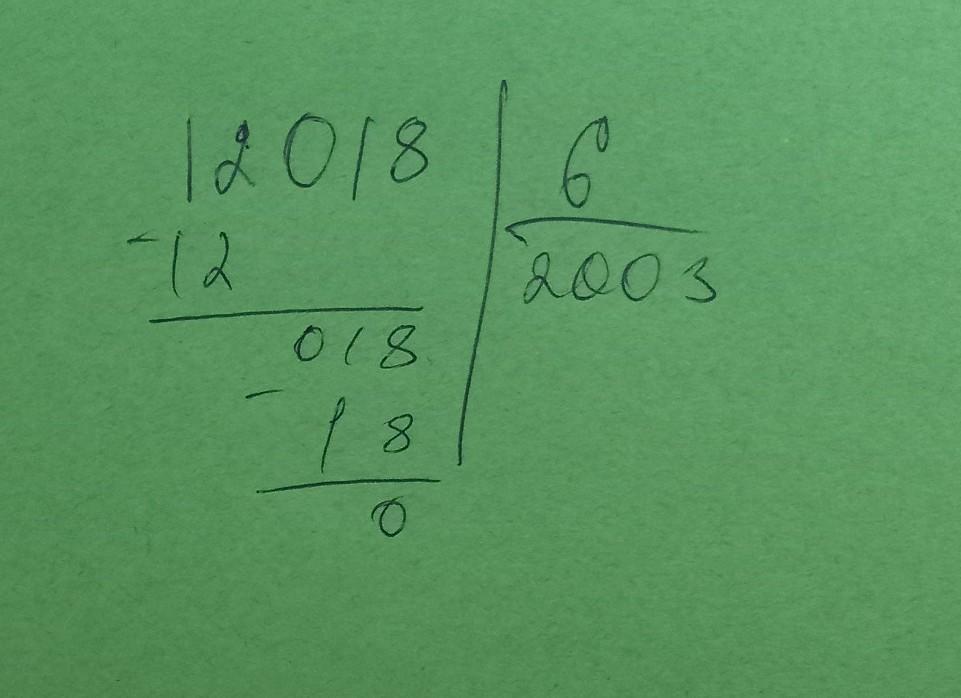 12018 | 6
-12 | 2003
018
- 18
0